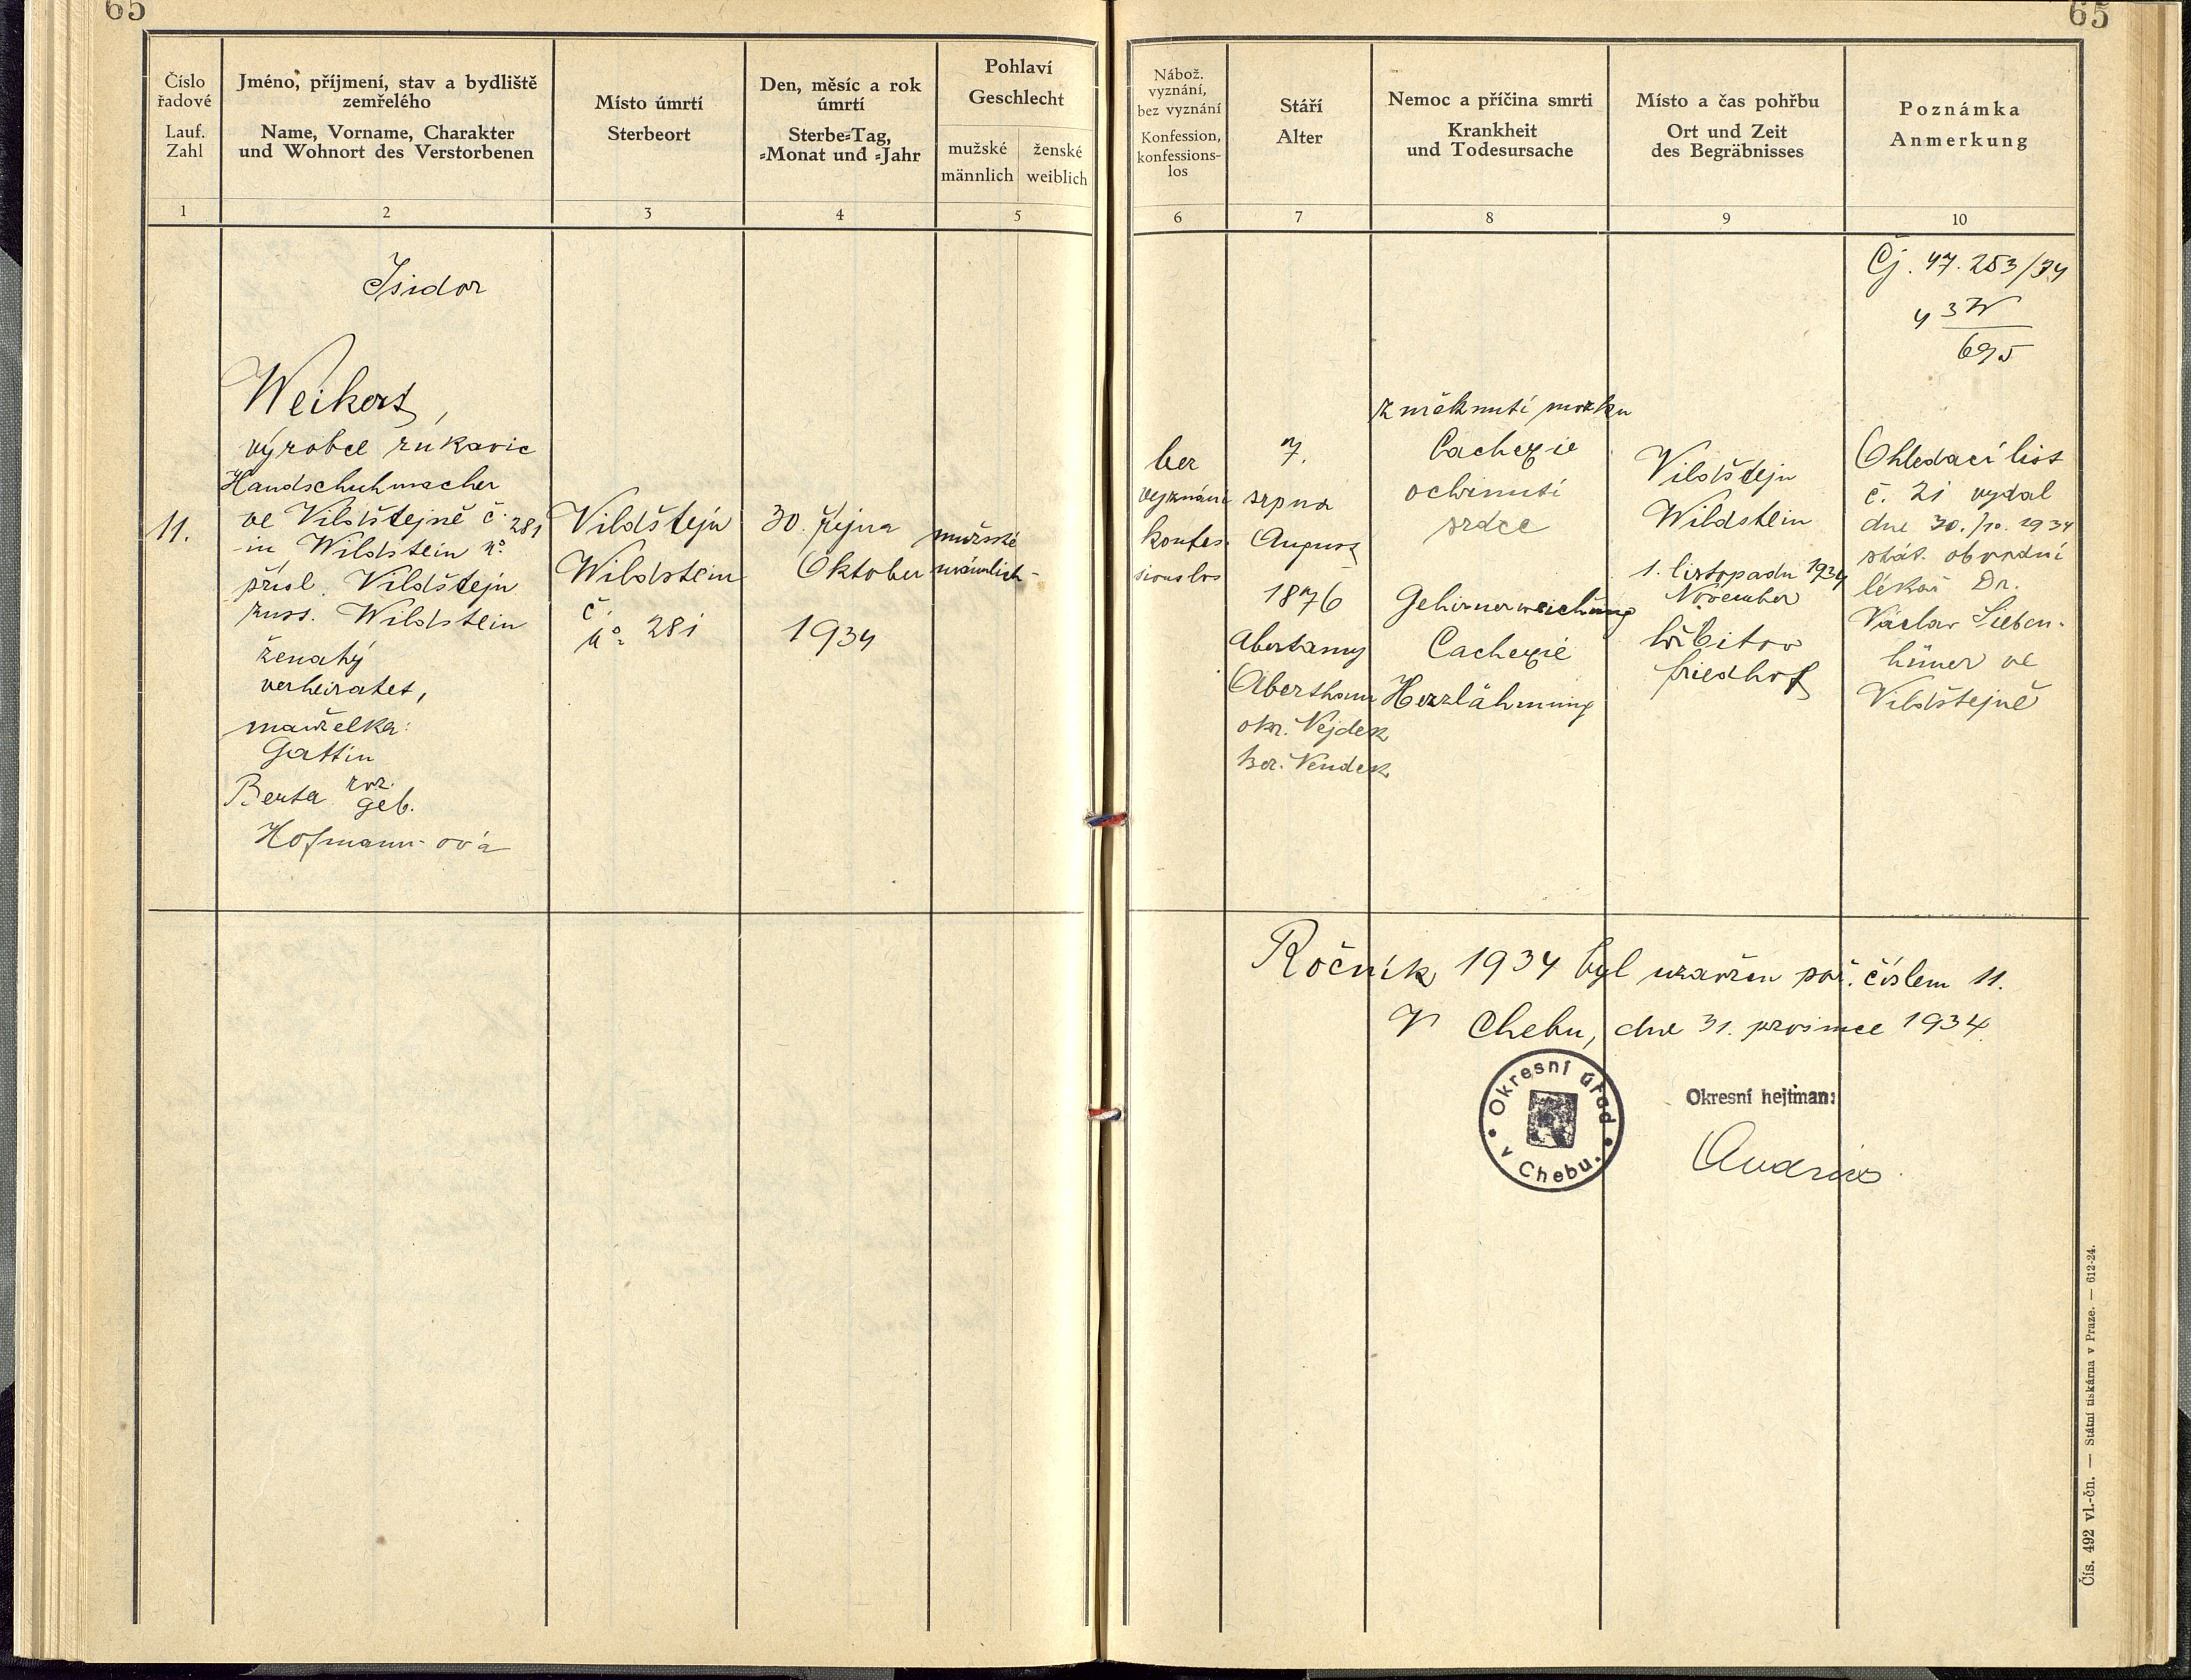 65
65
Číslo
řadové
Lauf.
Zahl
Jméno, příjmení, stav a bydliště
zemřelého
Name, Vorname, Charakter
und Wohnort des Verstorbenen
Místo úmrtí
Sterbeort
Den, měsíc a rok
úmrtí
Sterbe=Tag,
=Monat und =Jahr
Pohlaví
Geschlecht
mužské
männlich
ženské
weiblich
1
2
3
4
5
Nábož.
vyznání,
bez vyznání
Konfession,
konfessions-
los
Stáří
Alter
Nemoc a příčina smrti
Krankheit
und Todesursache
Místo a čas pohřbu
Ort und Zeit
des Begräbnisses
Poznámka
Anmerkung
6
7
8
9
10
11.
Isidor
Weikert,
výrobce rukavic
Handschuhmacher
ve Vildštejně č. 281
in Wildstein No
přísl. Vildštejn
zuss. Wildstein
ženatý
verheiratet,
manželka:
Gattin
Berta roz.
geb.
Hofmann-ová
Vildštejn
Wildstein
č.
No 281
30. října
Oktober
1934
mužské
männlich
bez
vyznání
konfes-
sionslos
7.
srpna
August
1876
Abertamy
Abertham
okr. Nejdek
bez. Neudek
změknutí mozku
Cachexie
ochrnutí
srdce
Gehirnerweichung
Cachexie
Herzlähmung
Vildštejn
Wildstein
1. listopadu 1934
November
hřbitov
friedhof
Čj. 47.253/34
695
Ohledací list
č. 21 vydal
dne 30./10. 1934
stát. obvodní
lékař Dr.
Václav Sieben-
hüner ve
Vildštejně
Ročník 1934 byl uzavřen poř. číslem 11.
V Chebu, dne 31. prosince 1934.
Okresní úřad
v Chebu.
Okresní hejtman:
Čís. 492 vl.-čn. — Státní tiskárna v Praze. — 612-24.